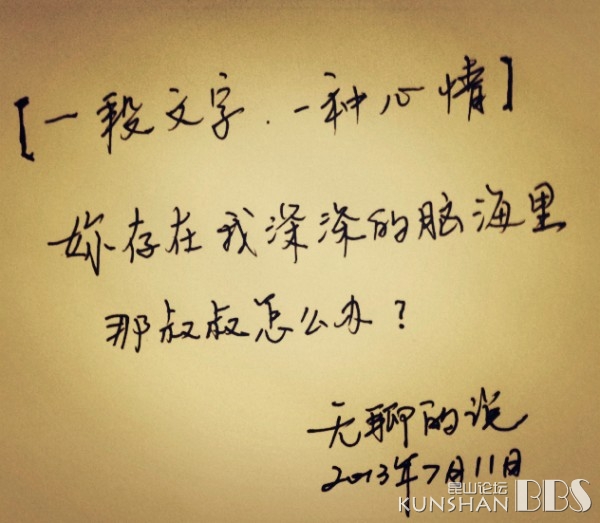 [一段文字.一种心情]
妳存在我深深的脑海里
那叔叔怎么办?
无聊的说
2013年7月11日
昆山论坛
KUNSHAN BBS